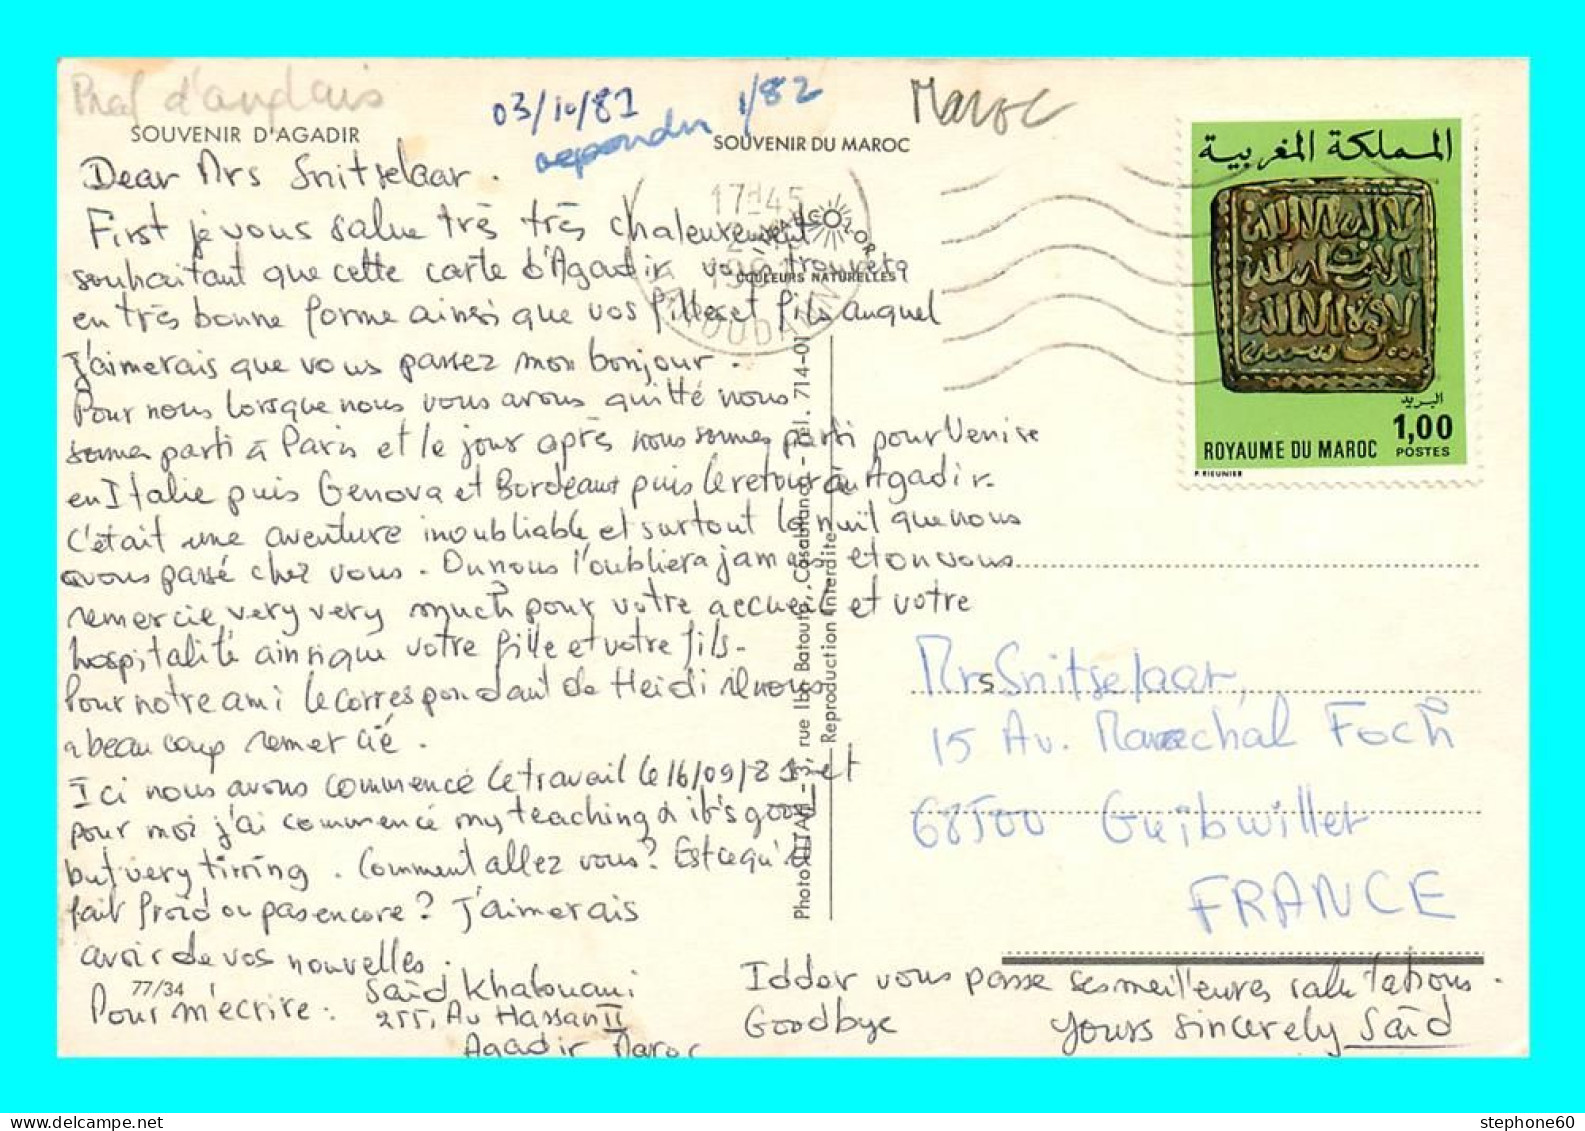 Prof d'anglais
03/10/81
repondu 1/82
Maroc
SOUVENIR D'AGADIR
SOUVENIR DU MAROC
Dear Mrs Snitselaar.
First je vous salue très très chaleureusement
souhaitant que cette carte d'Agadir vous trouvera
en très bonne forme ainsi que vos filles et fils auquel
J'aimerais que vous passez mon bonjour.
Pour nous lorsque nous vous avons quitté nous
sommes parti à Paris et le jour après nous sommes parti pour Venise
en Italie puis Genova et Bordeaux puis le retour à Agadir.
C'était une aventure inoubliable et surtout la nuit que nous
avons passé chez vous. On nous l'oubliera jamais et on vous
remercie very very much pour votre accueil et votre
hospitalité ainsi que votre fille et votre fils.
Pour notre ami le correspondant de Heidi il nous
a beaucoup remercié.
Ici nous avons commencé le travail le 16/09/81 et
pour moi j'ai commencé my teaching & it's good
but very tiring. Comment allez vous? Est ce qu'il
fait froid ou pas encore? J'aimerais
avoir de vos nouvelles.
77/34
Pour m'écrire:
Saïd Khalouani
255, Av Hassan II
Agadir Maroc
Iddor vous passe ses meilleures salutations.
Goodbye
Yours sincerely Saïd
17H45
1981
COLOR
COULEURS NATURELLES
Photo ITTAH - 3, rue Ibn Batouta, Casablanca - Tél. 714-01
Reproduction Interdite
المملكة المغربية
البريد
1,00
POSTES
ROYAUME DU MAROC
P. RIEUNIER
Mrs Snitselaar,
15 Av. Marechal Foch
68500 Guibwiller
FRANCE
stephone60